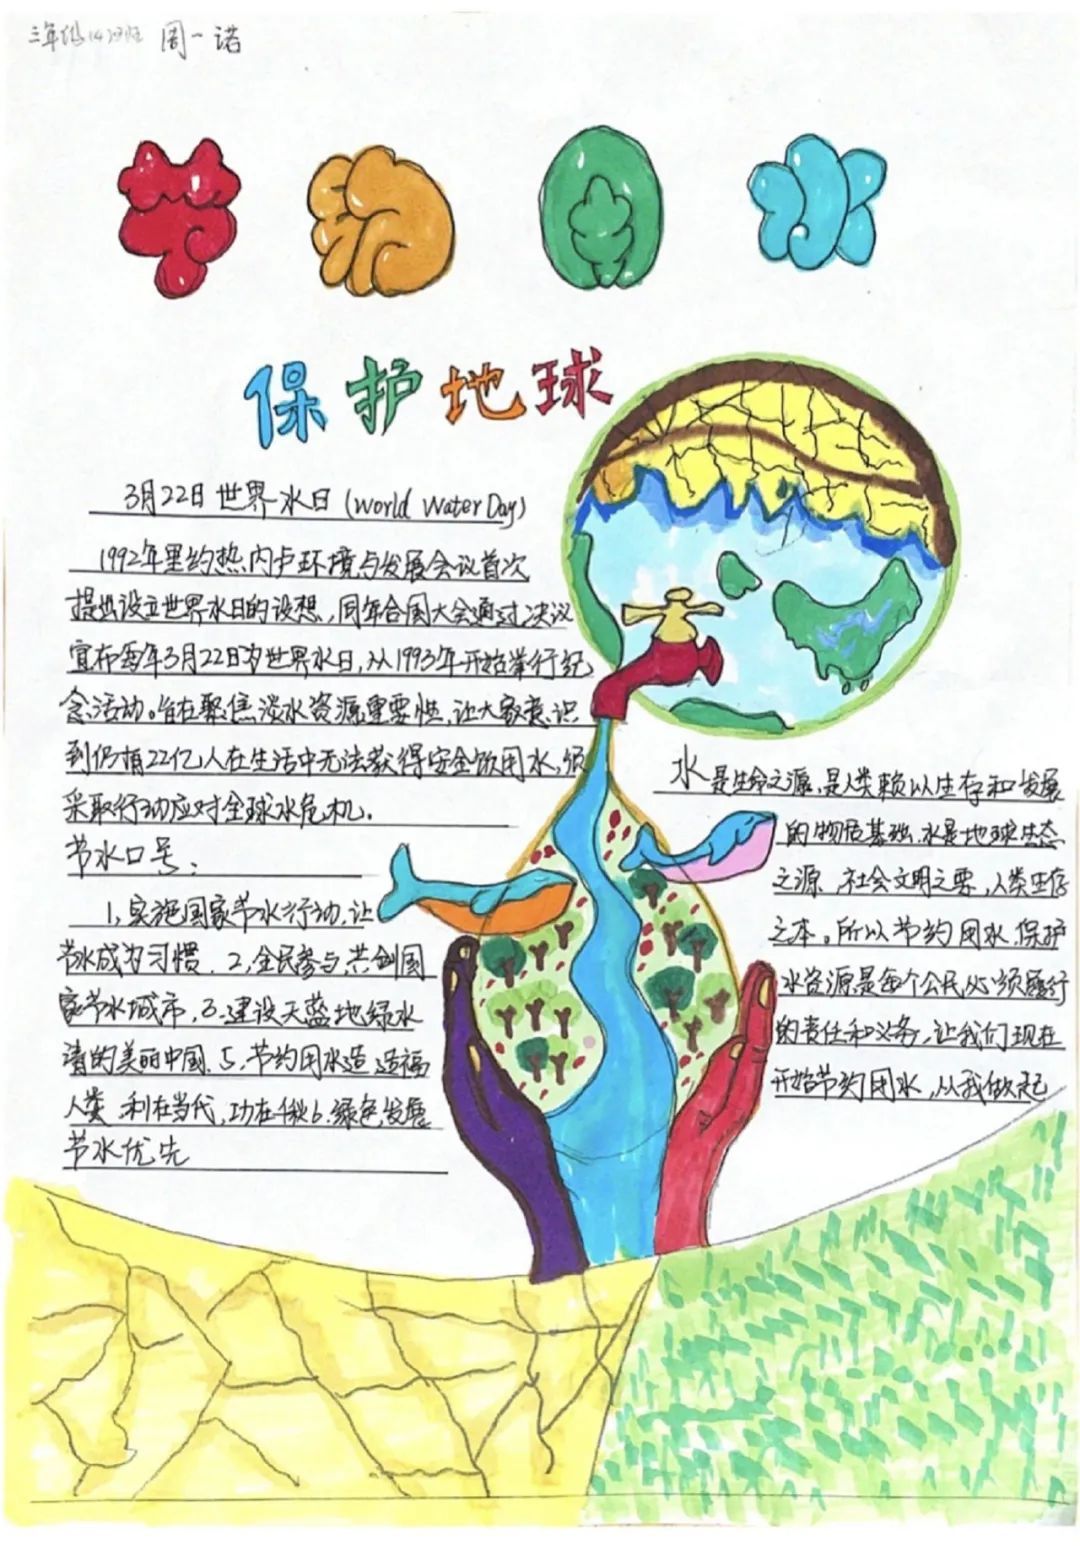 三年级(4)班 周一诺
节约用水
保护地球
3月22日世界水日(World Water Day)
1992年里约热内卢环境与发展会议首次
提出设立世界水日的设想,同年合国大会通过决议
宣布每年3月22日为世界水日,从1993年开始举行纪
念活动。旨在聚焦淡水资源重要性,让大家意识
到仍有22亿人在生活中无法获得安全饮用水,须
采取行动应对全球水危机.
节水口号:
1,实施国家节水行动,让
节水成为习惯. 2,全民参与,共创国
家节水城市,3.建设天蓝地绿水
清的美丽中国.5,节约用水造 造福
人类 利在当代,功在千秋6.绿色发展
节水优先
水是生命之源,是人类赖以生存和发展
的物质基础.水是地球生态
之源,社会文明之要,人类生存
之本。所以节约用水,保护
水资源是每个公民必须履行
的责任和义务,让我们现在
开始节约用水,从我做起